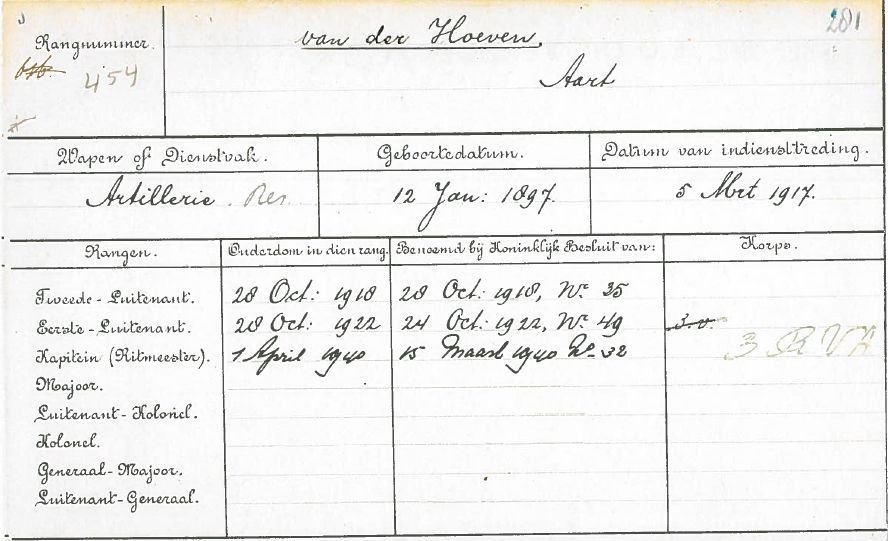 281
Rangnummer.
van der Hoeven,
454
Aart
Wapen of Dienstvak. Geboortedatum. Datum van indiensttreding.
Artillerie. Res. 12 Jan: 1897. 5 Mrt 1917.
Rangen. Ouderdom in dien rang. Benoemd bij Koninklijk Besluit van: Korps.
Tweede-Luitenant. 28 Oct: 1918 28 Oct: 1918, No. 35
Eerste-Luitenant. 28 Oct: 1922 24 Oct: 1922, No. 49
Kapitein (Ritmeester). 1 April 1940 15 Maart 1940 No. 32 3 R V A
Majoor.
Luitenant-Kolonel.
Kolonel.
Generaal-Majoor.
Luitenant-Generaal.